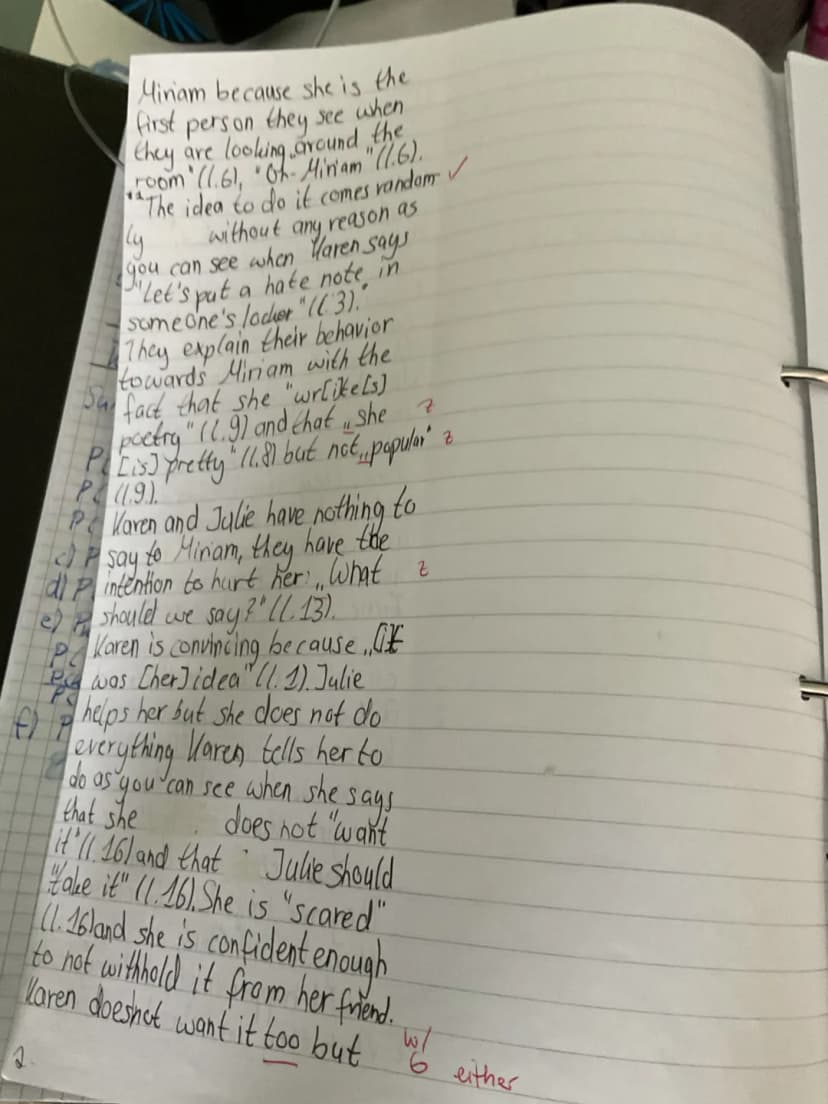 Miriam because she is the
first person they see when
they are looking "around the
room" (l.6), "Oh - Miriam" (l.6).
"The idea to do it comes random- ✓
ly without any reason as
you can see when Karen says
"Let's put a hate note in
someone's locker" (l.3).
They explain their behavior
towards Miriam with the
fact that she "wr[ike[s]
poetry" (l.9) and that „she z
[is] pretty" (l.8) but not „popular" z
(l.9).
Karen and Julie have nothing to
say to Miriam, they have the
intention to hurt her: „What z
should we say?" (l.13).
Karen is convincing because „[it
was [her] idea" (l.1). Julie
helps her but she does not do
everything Karen tells her to
do as you can see when she says
that she does not "want
it" (l.16) and that Julie should
"take it" (l.16). She is "scared"
(l.16) and she is confident enough
to not withhold it from her friend.
Karen doesnot want it too but w/ 6 either
2.
Su
P
P
P
c) P
d) P
e) P
P
P
f) P